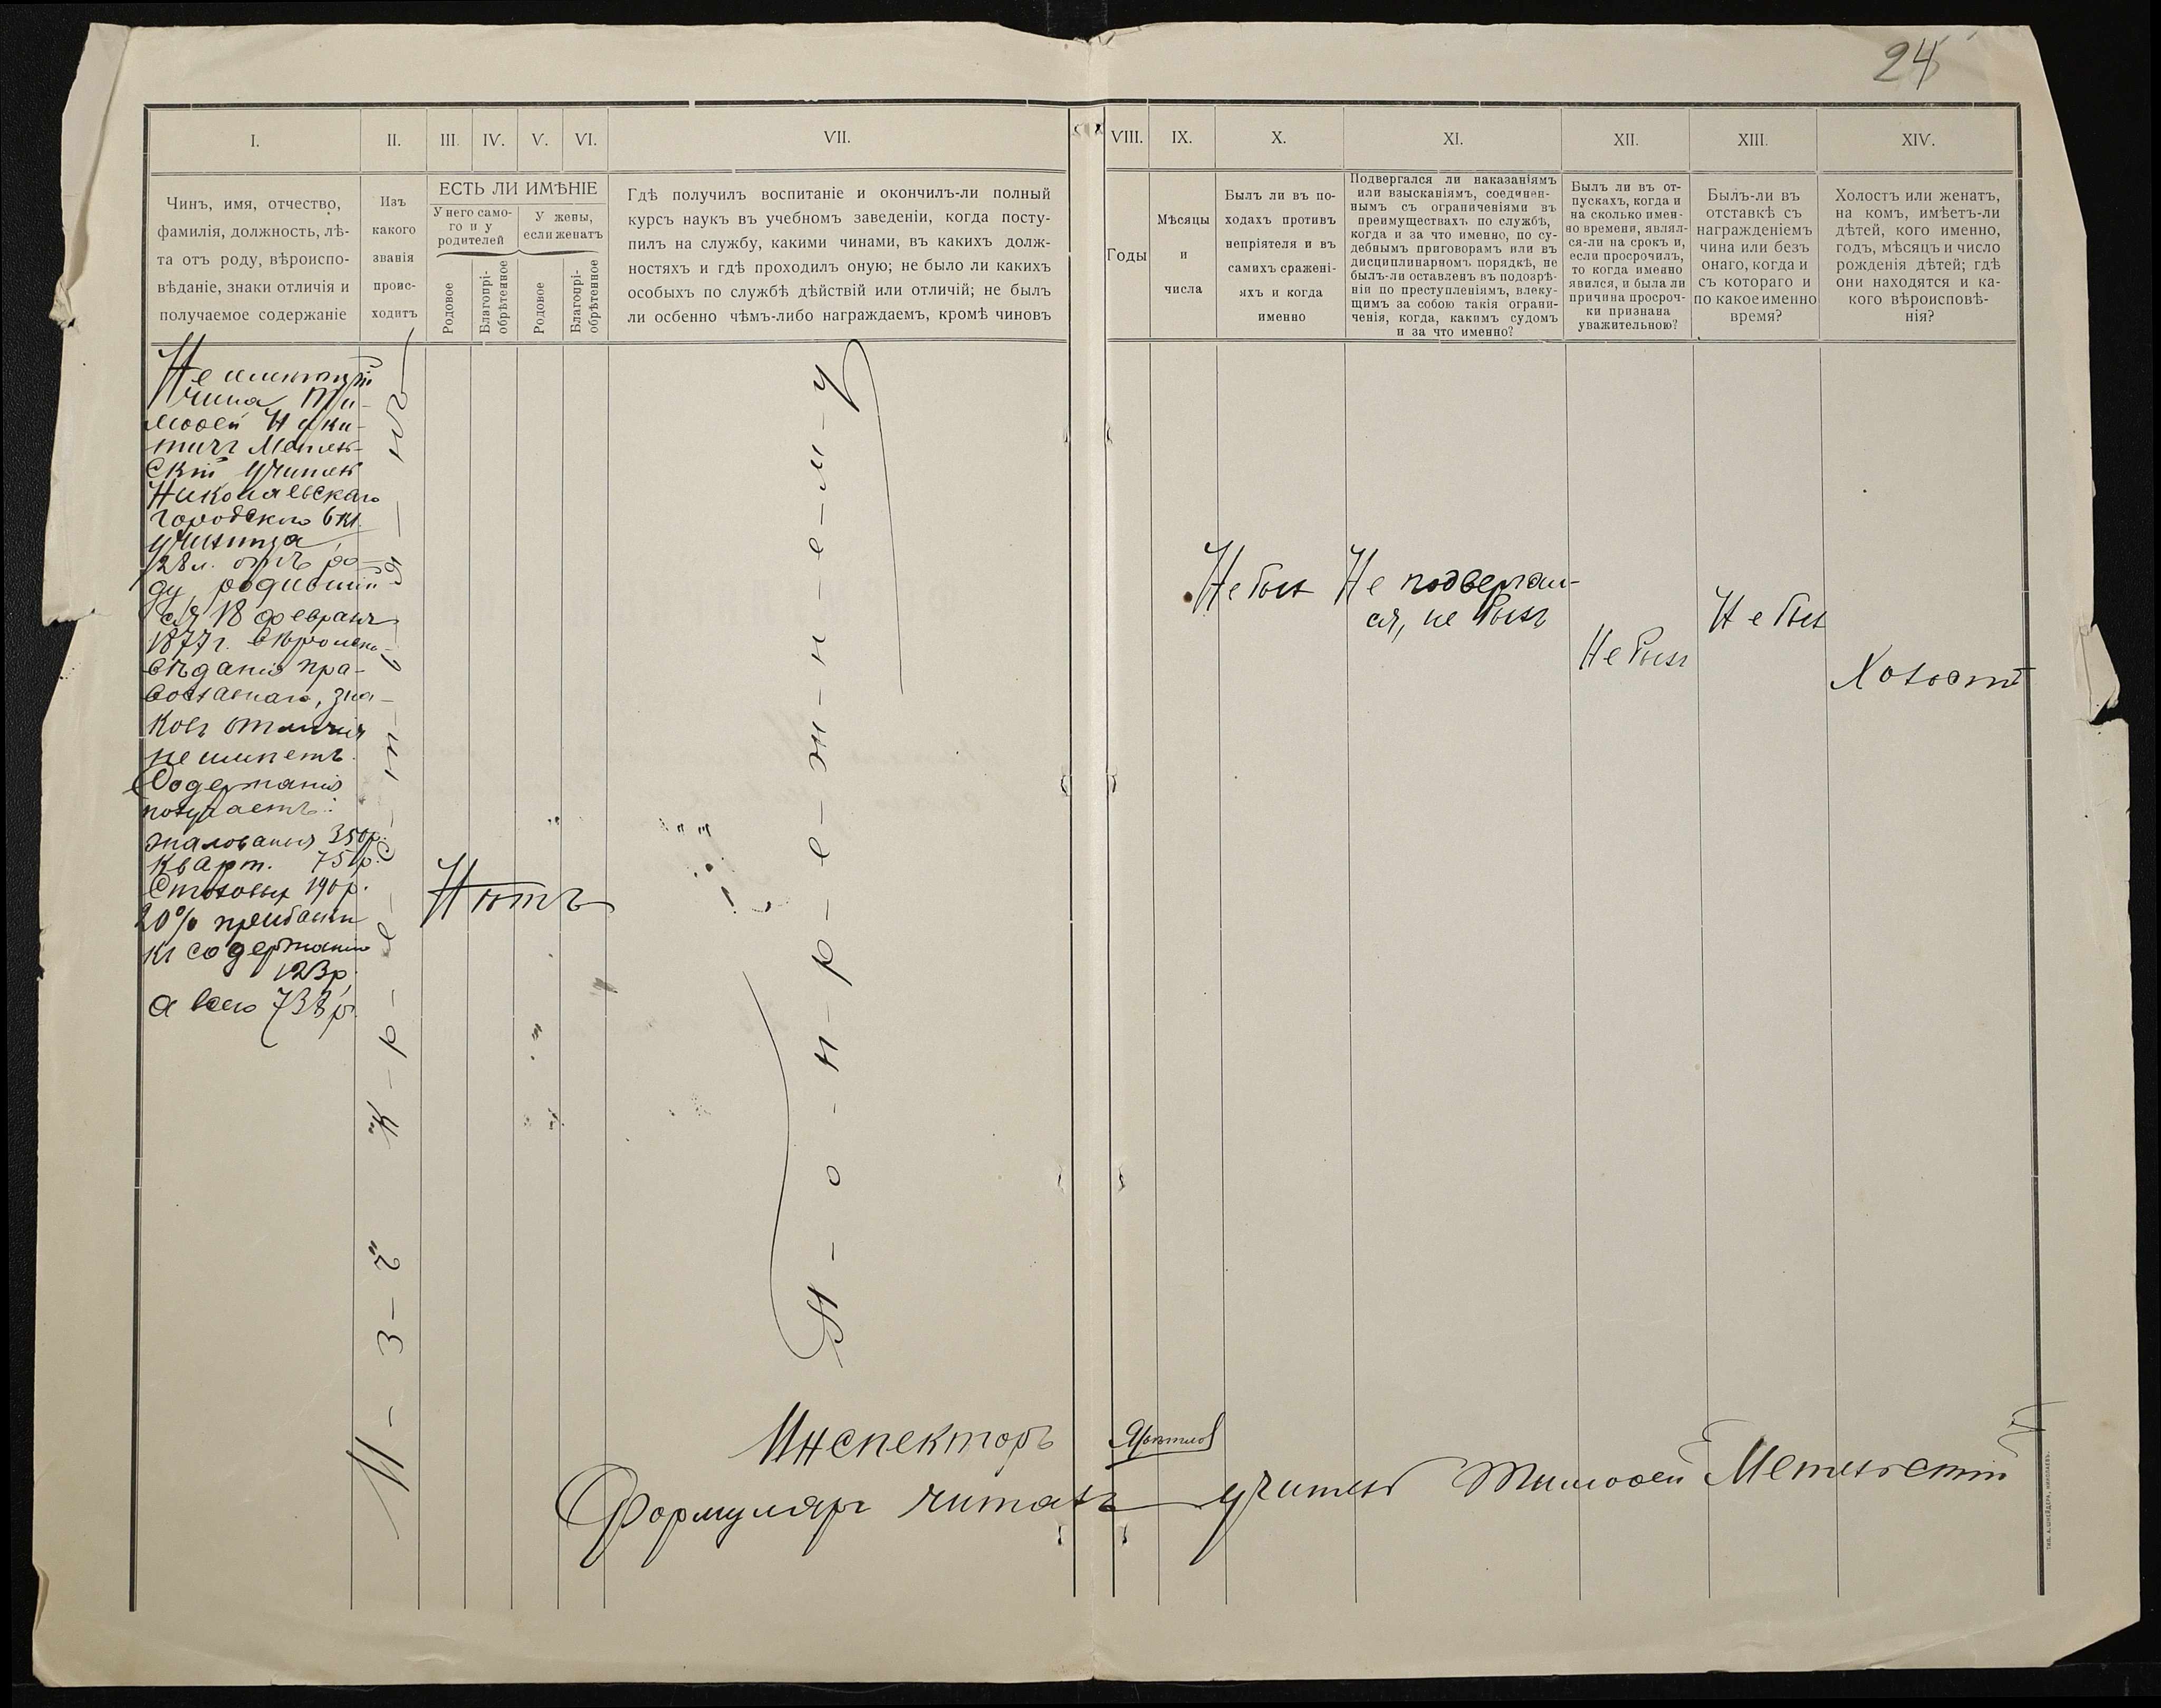 24
I.
II.
III.
IV.
V.
VI.
VII.
VIII.
IX.
X.
XI.
XII.
XIII.
XIV.
Чинъ, имя, отчество,
фамилія, должность, лѣ-
та отъ роду, вѣроиспо-
вѣданіе, знаки отличія и
получаемое содержаніе
Изъ
какого
званія
проис-
ходитъ
ЕСТЬ ЛИ ИМѢНІЕ
У него само-
го и у
родителей
У жены,
если женатъ
Родовое
Благопрі-
обрѣтенное
Родовое
Благопрі-
обрѣтенное
Гдѣ получилъ воспитаніе и окончилъ-ли полный
курсъ наукъ въ учебномъ заведеніи, когда посту-
пилъ на службу, какими чинами, въ какихъ долж-
ностяхъ и гдѣ проходилъ оную; не было ли какихъ
особыхъ по службѣ дѣйствій или отличій; не былъ
ли осбенно чѣмъ-либо награждаемъ, кромѣ чиновъ
Годы
Мѣсяцы
и
числа
Былъ ли въ по-
ходахъ противъ
непріятеля и въ
самихъ сражені-
яхъ и когда
именно
Подвергался ли наказаніямъ
или взысканіямъ, соединен-
нымъ съ ограниченіями въ
преимуществахъ по службѣ,
когда и за что именно, по су-
дебнымъ приговорамъ или въ
дисциплинарномъ порядкѣ, не
былъ-ли оставленъ въ подозрѣ-
ніи по преступленіямъ, влеку-
щимъ за собою такія ограни-
ченія, когда, какимъ судомъ
и за что именно?
Былъ ли въ от-
пускахъ, когда и
на сколько имен-
но времени, являл-
ся-ли на срокъ и,
если просрочилъ,
то когда именно
явился, и была ли
причина просроч-
ки признана
уважительною?
Былъ-ли въ
отставкѣ съ
награжденіемъ
чина или безъ
онаго, когда и
съ котораго и
по какое именно
время?
Холостъ или женатъ,
на комъ, имѣетъ-ли
дѣтей, кого именно,
годъ, мѣсяцъ и число
рожденія дѣтей; гдѣ
они находятся и ка-
кого вѣроисповѣ-
нія?
Не имѣющій
чина Ти-
моѳей Ники-
тичъ Метель-
скій учитель
Николаевскаго
городского 6 кл.
училища,
28 л. отъ ро-
ду, родивший
ся 18 февраля
1877 г.
вѣданія пра-
вославнаго, зна-
ковъ отличія
не имѣетъ.
Содержанія
получаетъ:
жалованья 350 р.
кварт. 75 р.
Столовых 190 р.
20% прибавки
къ содержанію
123 р.
а всего 738 р.
И-з-ъ к-р-е-с-т-ь-я-нъ
Нѣтъ
П-о-п-р-е-ж-н-е-м-у
Не былъ
Не подвергал-
ся, не былъ
Не былъ
Не былъ
Холостъ
Инспекторъ
Формуляръ читалъ учитель Тимоѳей Метельскій
ТИП. А. ШНЕЙДЕРА, НИКОЛАЕВЪ.